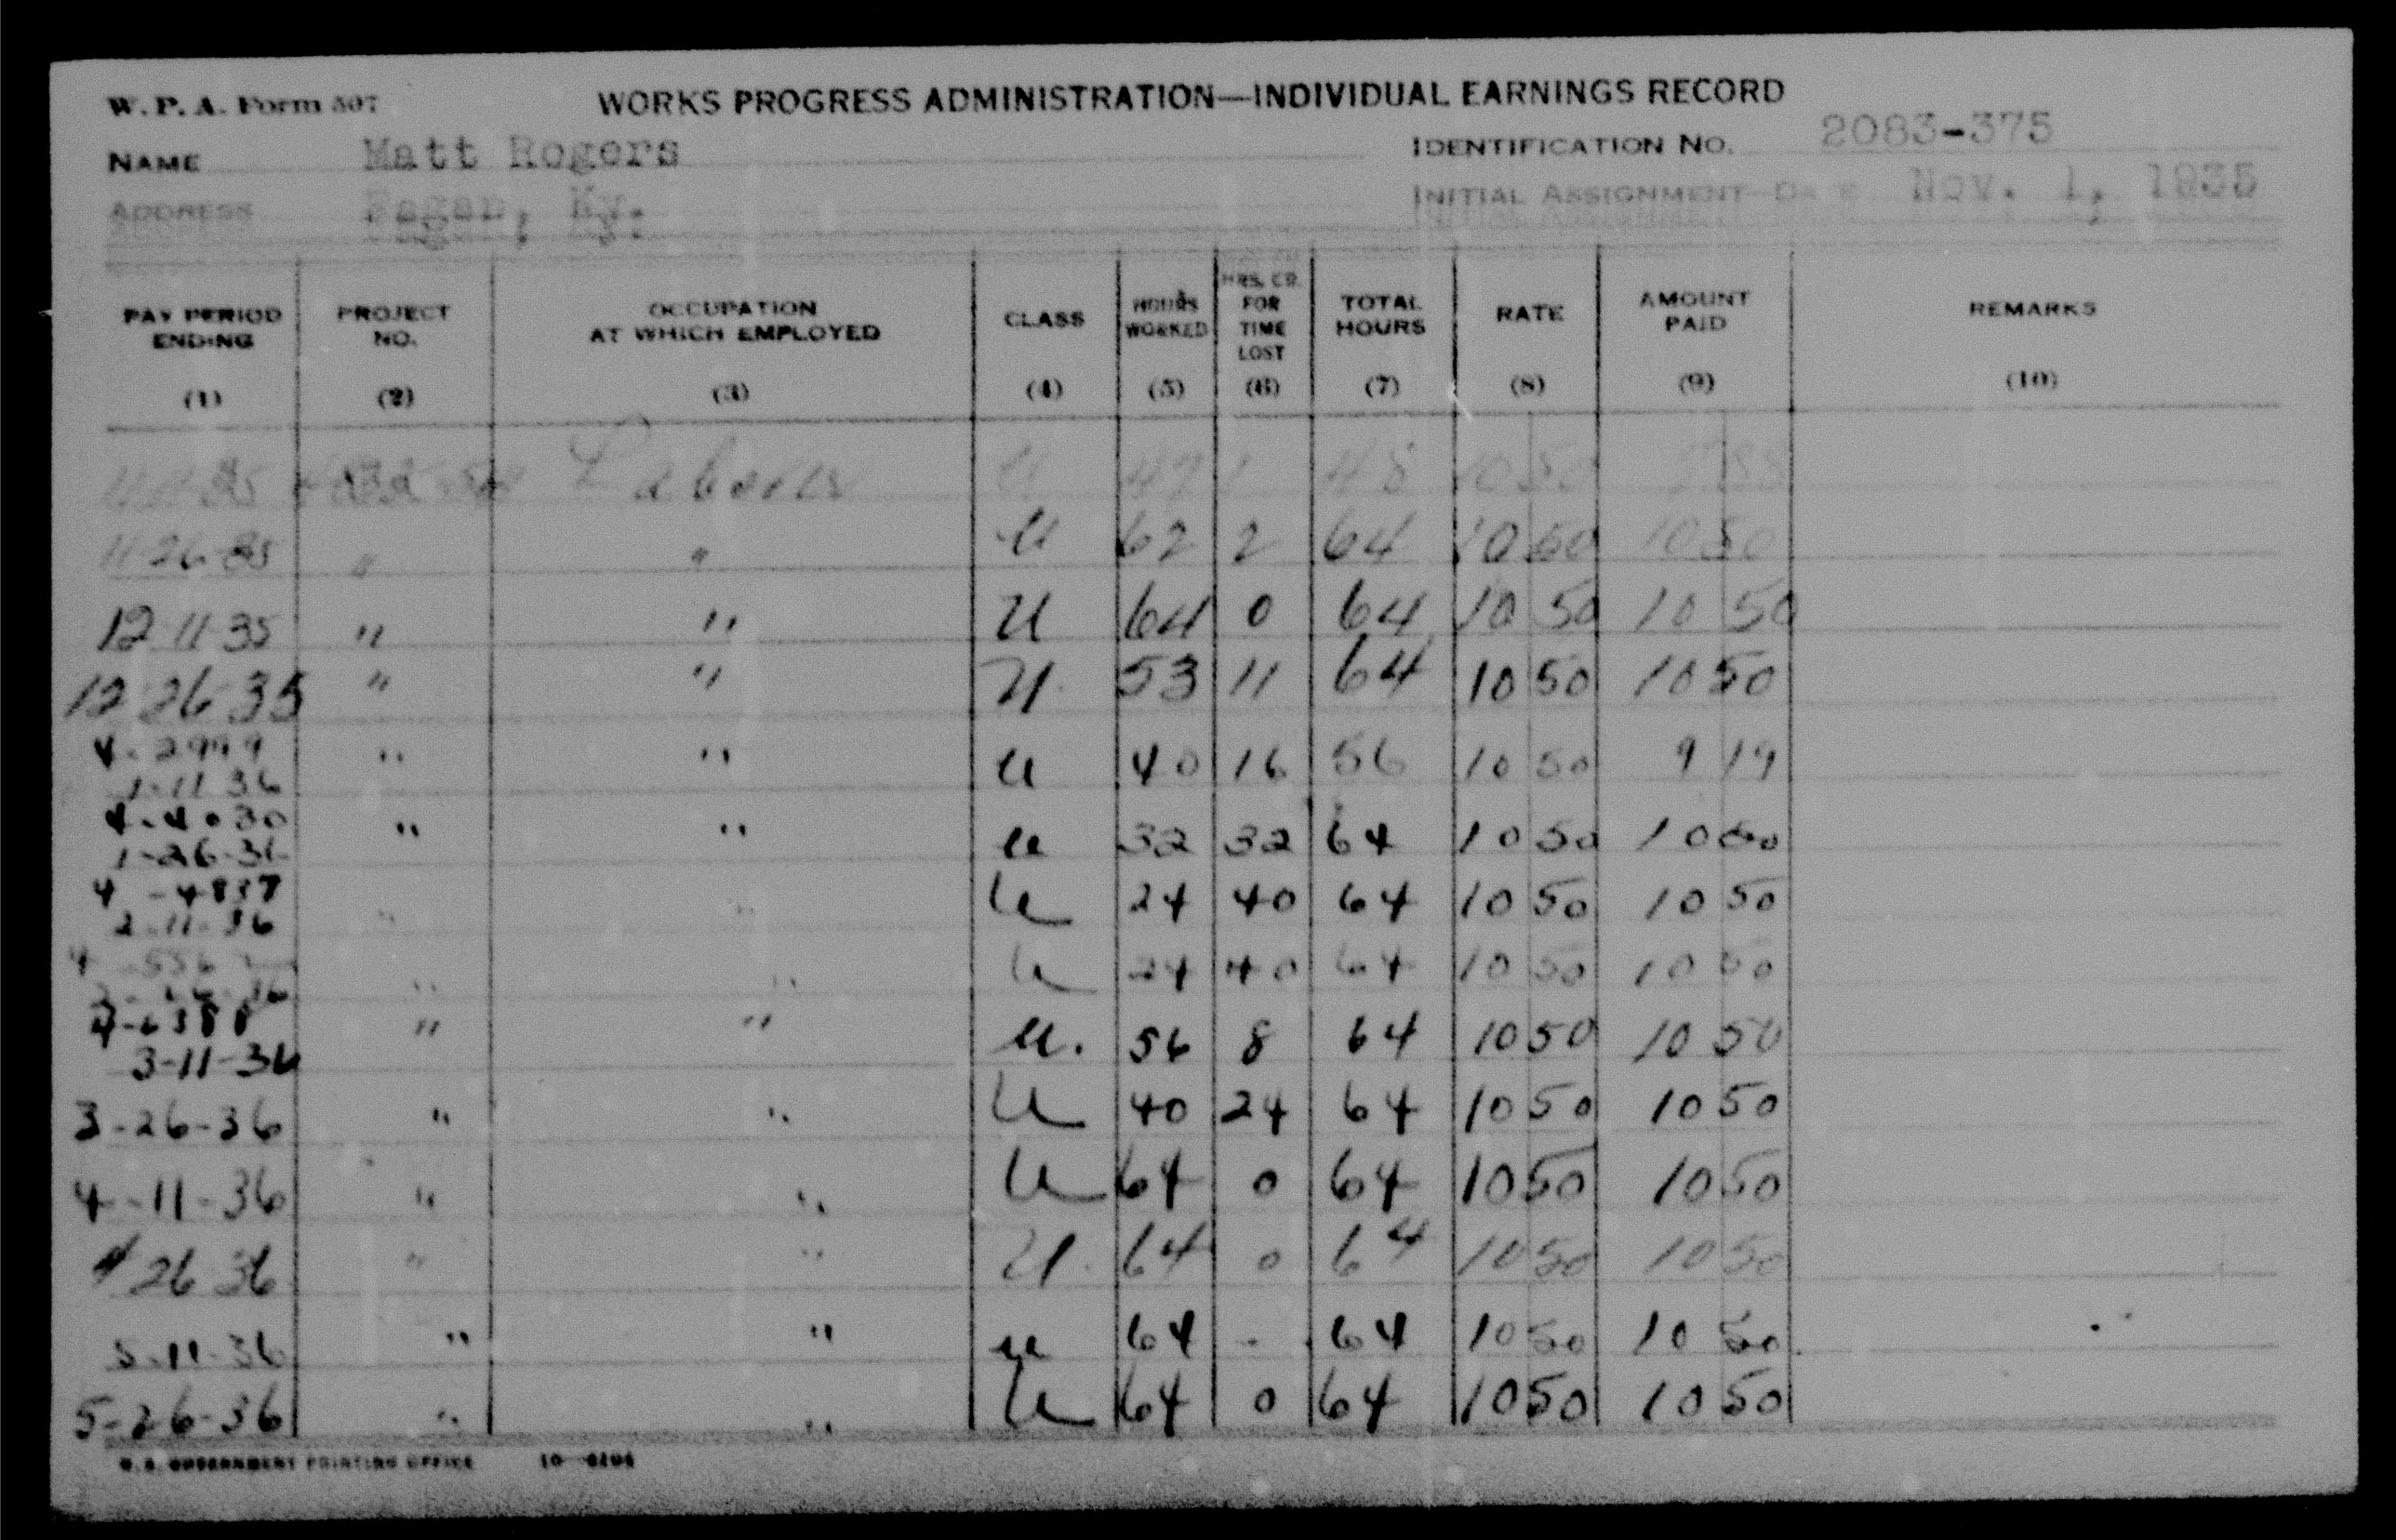 W. P. A. Form 507
WORKS PROGRESS ADMINISTRATION—INDIVIDUAL EARNINGS RECORD
NAME Matt Rogers IDENTIFICATION NO. 2083-375
ADDRESS Fagan, Ky. INITIAL ASSIGNMENT DATE Nov. 1, 1935
PAY PERIOD ENDING (1) PROJECT NO. (2) OCCUPATION AT WHICH EMPLOYED (3) CLASS (4) HOURS WORKED (5) HRS. CR. FOR TIME LOST (6) TOTAL HOURS (7) RATE (8) AMOUNT PAID (9) REMARKS (10)
Laborer U 47 1 48 10 50
11-26-35 " " U 62 2 64 10 50 10 50
12 11 35 " " U 64 0 64 10 50 10 50
12 26 35 " " U 53 11 64 10 50 10 50
4-2999
1-11 36 " " U 40 16 56 10 50 9 19
4-4030
1-26-36 " " U 32 32 64 10 50 10 50
4-4837
2-11-36 " " U 24 40 64 10 50 10 50
" " U 24 40 64 10 50 10 50
4-6388
3-11-36 " " U. 56 8 64 10 50 10 50
3-26-36 " " U 40 24 64 10 50 10 50
4-11-36 " " U 64 0 64 10 50 10 50
4 26 36 " " U. 64 0 64 10 50 10 50
5-11-36 " " U 64 - 64 10 50 10 50
5-26-36 " " U 64 0 64 10 50 10 50
U.S. GOVERNMENT PRINTING OFFICE